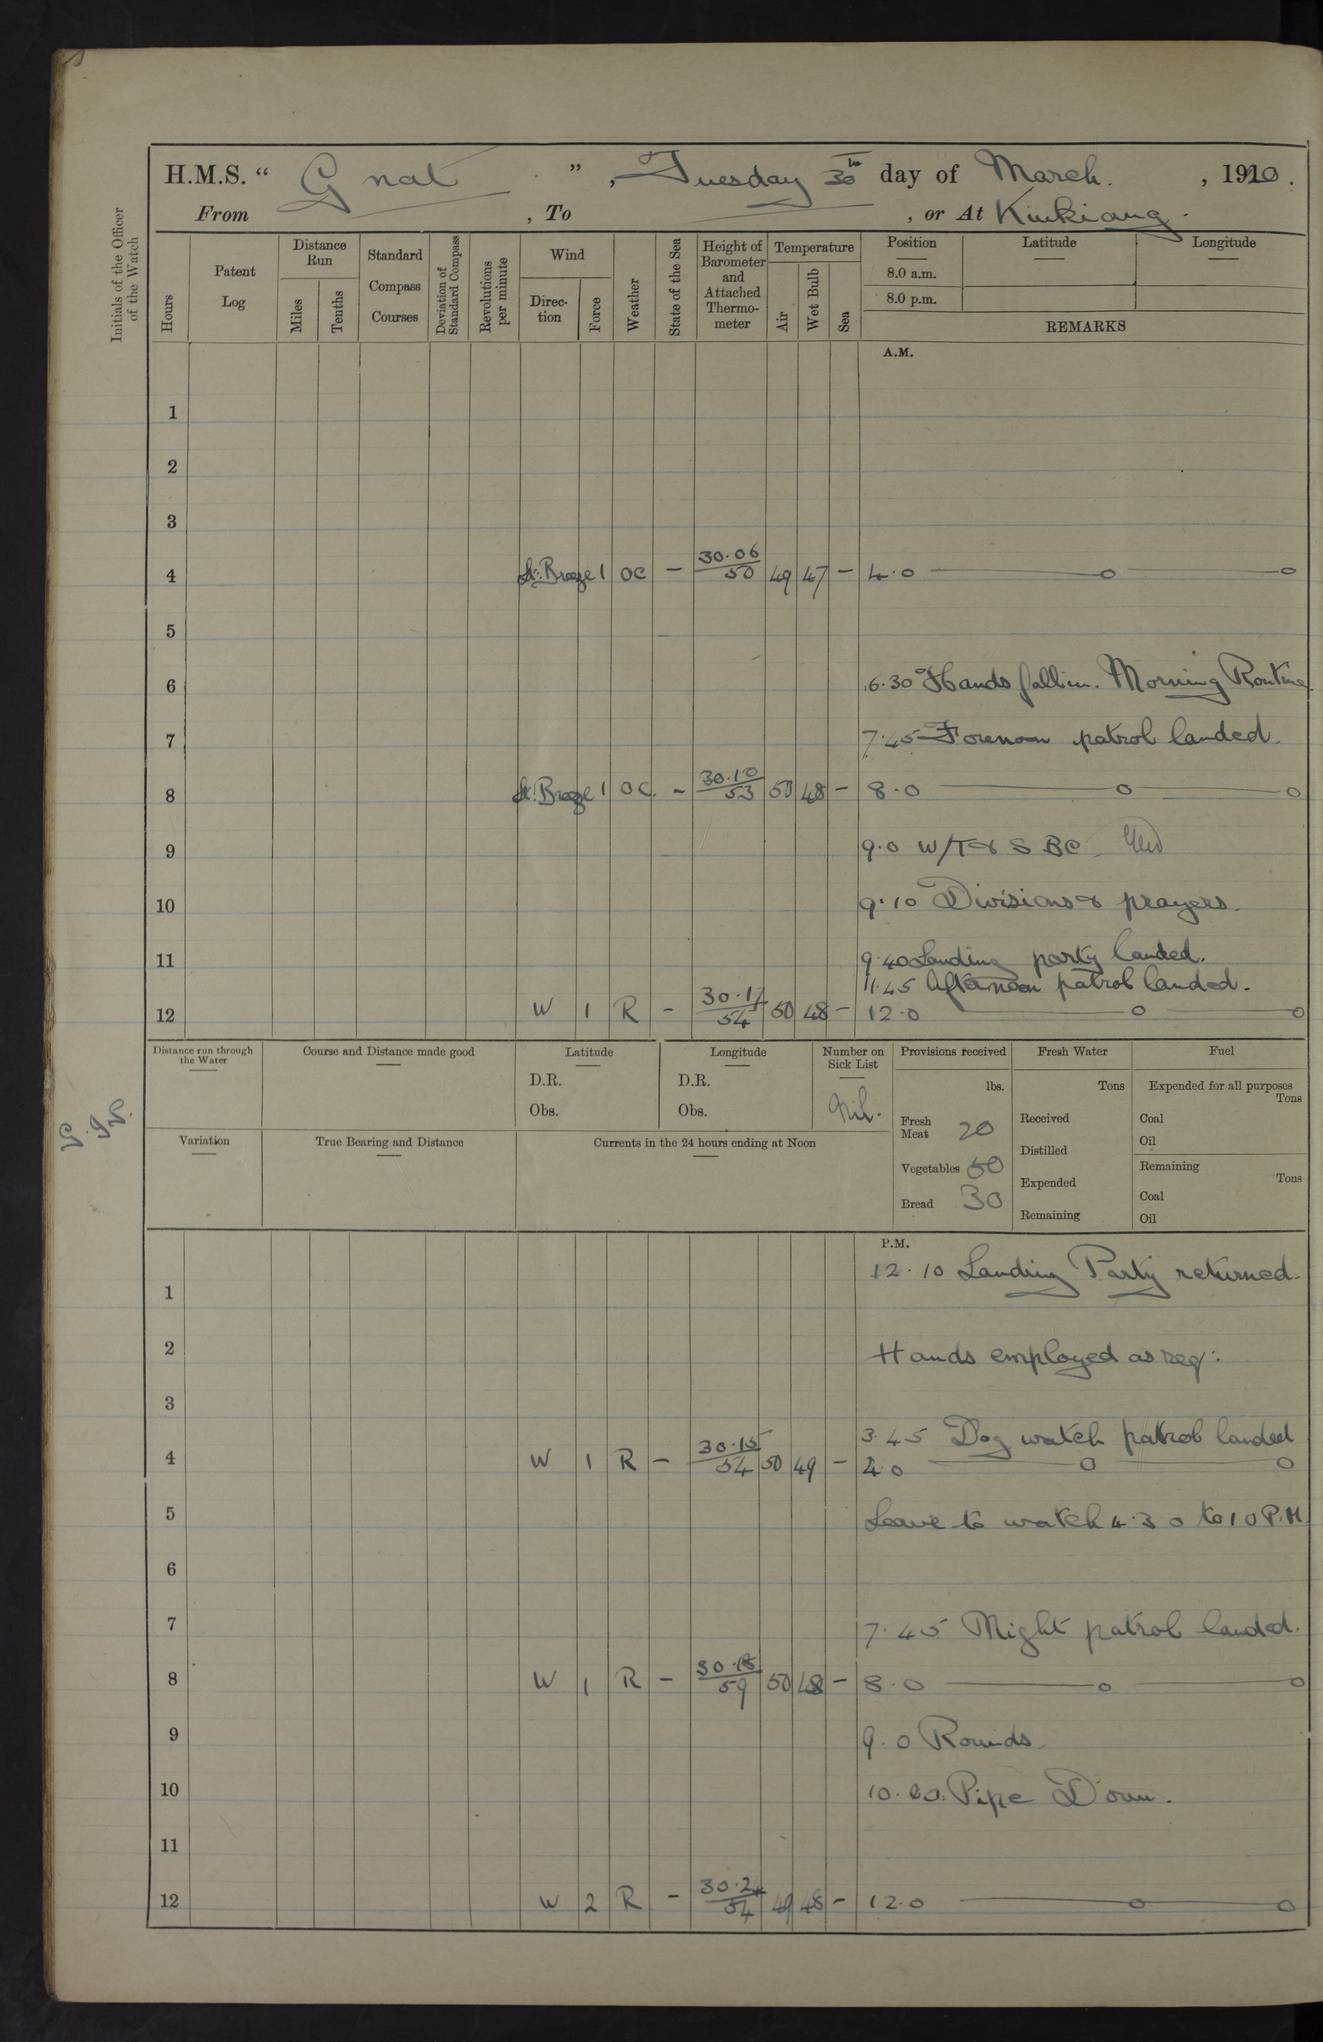 H.M.S. " Gnat ", Tuesday 30th day of March. , 1920.
From , To , or At Kiukiang.
Initials of the Officer of the Watch
Hours
Patent Log
Distance Run
Miles
Tenths
Standard Compass Courses
Deviation of Standard Compass
Revolutions per minute
Wind
Direction
Force
Weather
State of the Sea
Height of Barometer and Attached Thermometer
Temperature
Air
Wet Bulb
Sea
Position Latitude Longitude
8.0 a.m.
8.0 p.m.
REMARKS
A.M.
1
2
3
4 Lt. Breeze 1 OC - 30.06/50 49 47 - 4.0 —o —o
5
6 6.30 Hands fall in. Morning Routine.
7 7.45 Forenoon patrol landed.
8 Lt. Breeze 1 OC. - 30.10/53 50 48 - 8.0 —o —o
9 9.0 W/T & S BC
10 9.10 Divisions & prayers.
11 9.40 Landing party landed.
11.45 Afternoon patrol landed.
12 W 1 R - 30.17/54 50 48 - 12.0 —o —o
Distance run through the Water
Course and Distance made good
Latitude
D.R.
Obs.
Longitude
D.R.
Obs.
Number on Sick List
Nil.
Provisions received
lbs.
Fresh Meat 20
Vegetables 50
Bread 30
Fresh Water
Tons
Received
Distilled
Expended
Remaining
Fuel
Expended for all purposes
Tons
Coal
Oil
Remaining
Tons
Coal
Oil
Variation
True Bearing and Distance
Currents in the 24 hours ending at Noon
P.M.
12.10 Landing Party returned.
1
2 Hands employed as req:
3
3.45 Dog watch patrol landed
4 W 1 R - 30.15/54 50 49 - 4.0 —o —o
5 Leave to watch 4.30 to 10 P.M.
6
7 7.45 Night patrol landed.
8 W 1 R - 30.18/59 50 48 - 8.0 —o —o
9 9.0 Rounds
10 Pipe Down.
11
12 W 2 R - 49 48 - 12.0 —o —o